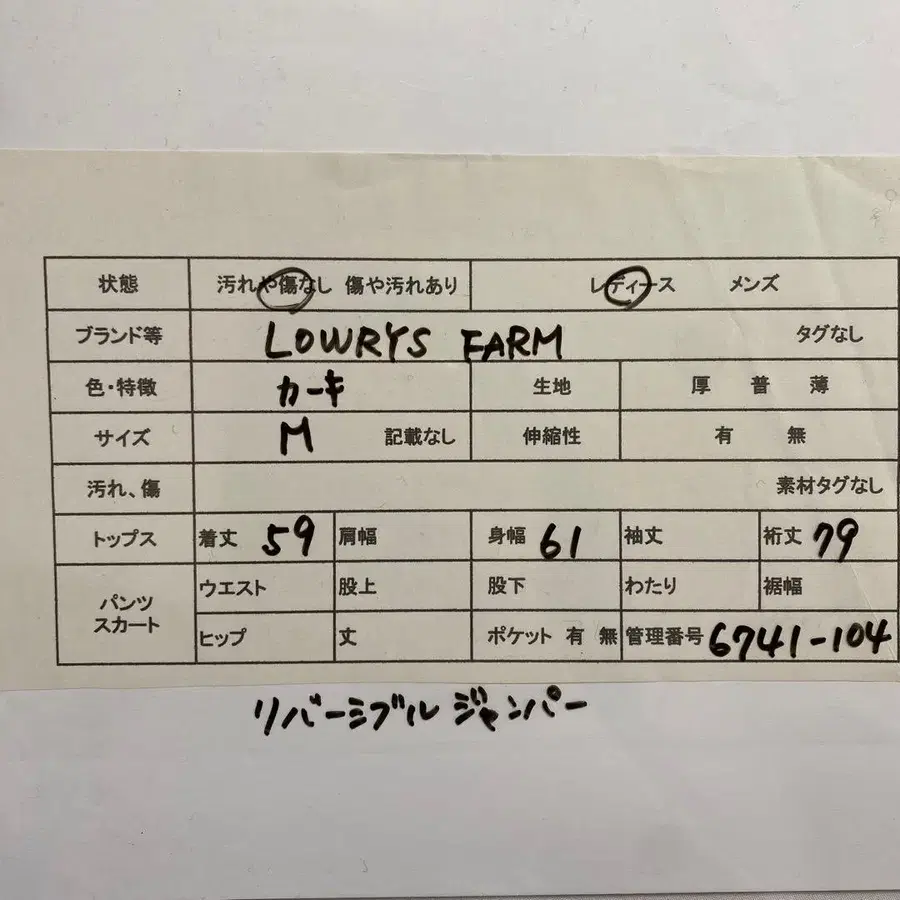 状態 汚れや傷なし 傷や汚れあり レディース メンズ
ブランド等 LOWRYS FARM タグなし
色・特徴 カーキ 生地 厚 普 薄
サイズ M 記載なし 伸縮性 有 無
汚れ、傷 素材タグなし
トップス 着丈 59 肩幅 身幅 61 袖丈 裄丈 79
パンツ スカート ウエスト 股上 股下 わたり 裾幅
ヒップ 丈 ポケット 有 無 管理番号 6741-104
リバーシブルジャンパー